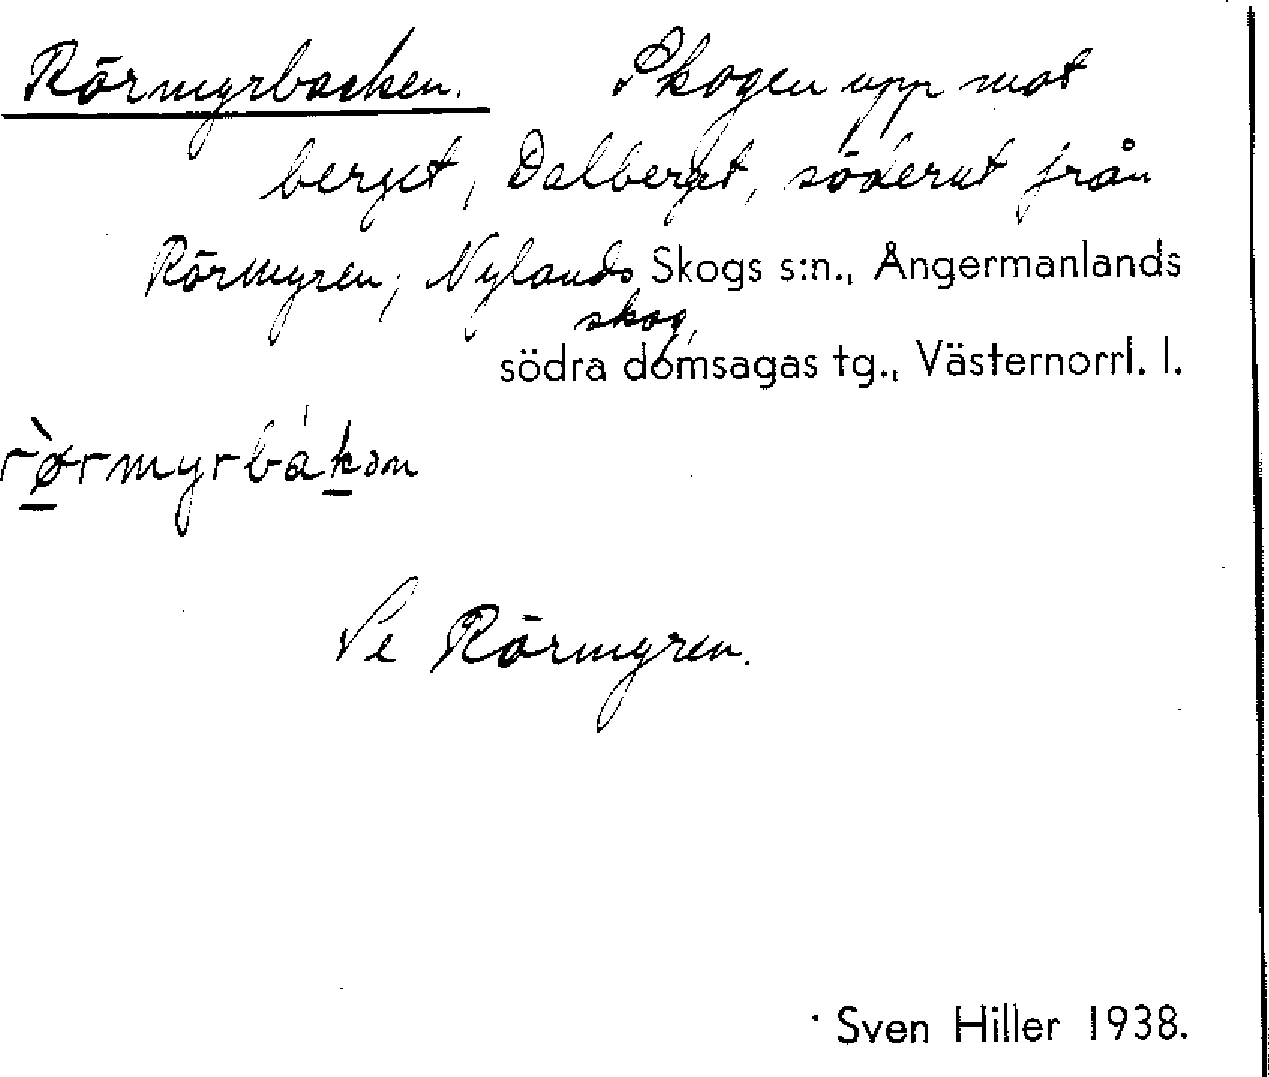 Rörmyrbacken. Skogen upp mot
berget, Dalberget, söderut från
Rörmyren; Nylands Skogs s:n., Ångermanlands
skog,
södra domsagas tg., Västernorrl. l.
rø̀rmyrbákən
Se Rörmyren.
Sven Hiller 1938.